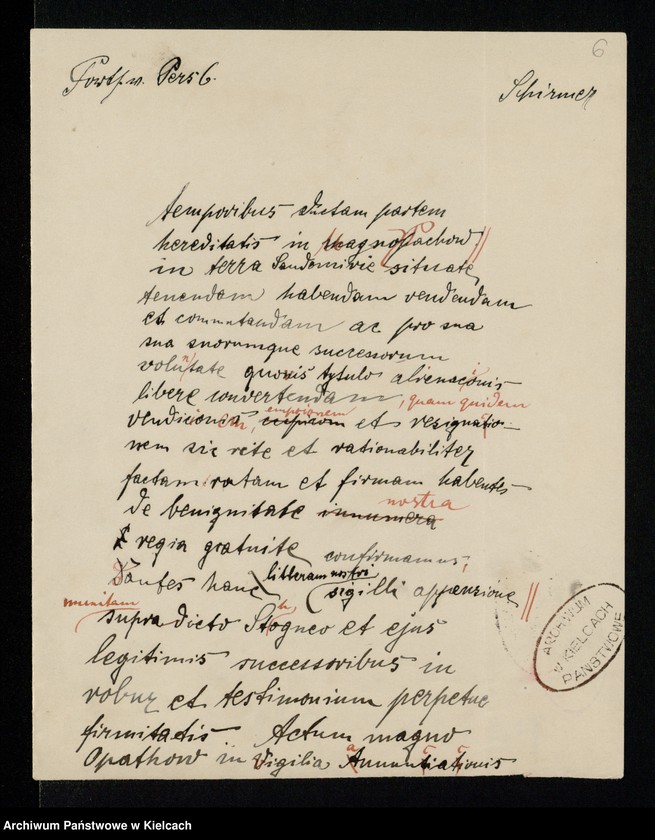 6
Forts. v. Pers 6.
Schirmer
temporibus dictam partem
hereditatis in magnopachow
in terra Sandomirie situate
tenendam habendam vendendam
et commutandam ac pro sua
sua suorumque successorum
voluntate quovis tytulo alienacionis
libere convertendam, quam quidem
vendicionem, empcionem et resignatio-
nem sic rite et rationabiliter
factam ratam et firmam habentes
de benignitate innumera nostra
regia gratuite confirmamus,
Dantes hanc litteram nostri sigilli appensione
munitam
supra dicto Stogneo et ejus
legitimis successoribus in
robur et testimonium perpetue
firmitatis Actum magno
Opathow in Vigilia Annuntiationis
ARCHIWUM
W KIELCACH
PAŃSTWOWE
Archiwum Państwowe w Kielcach